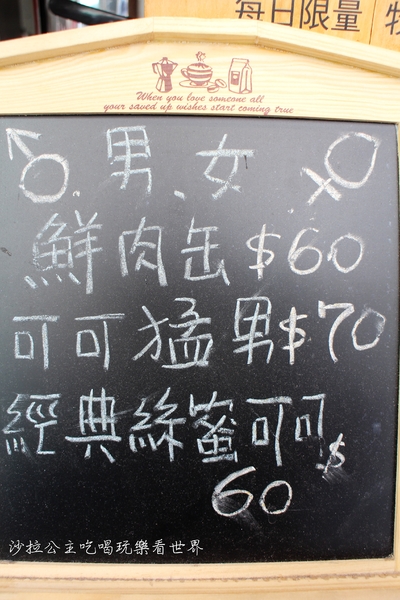 每日限量
When you love someone all
your saved up wishes start coming true
♂.男.女.♀
鮮肉缶$60
可可猛男$70
經典絲蜜可可$
60
沙拉公主吃喝玩樂看世界